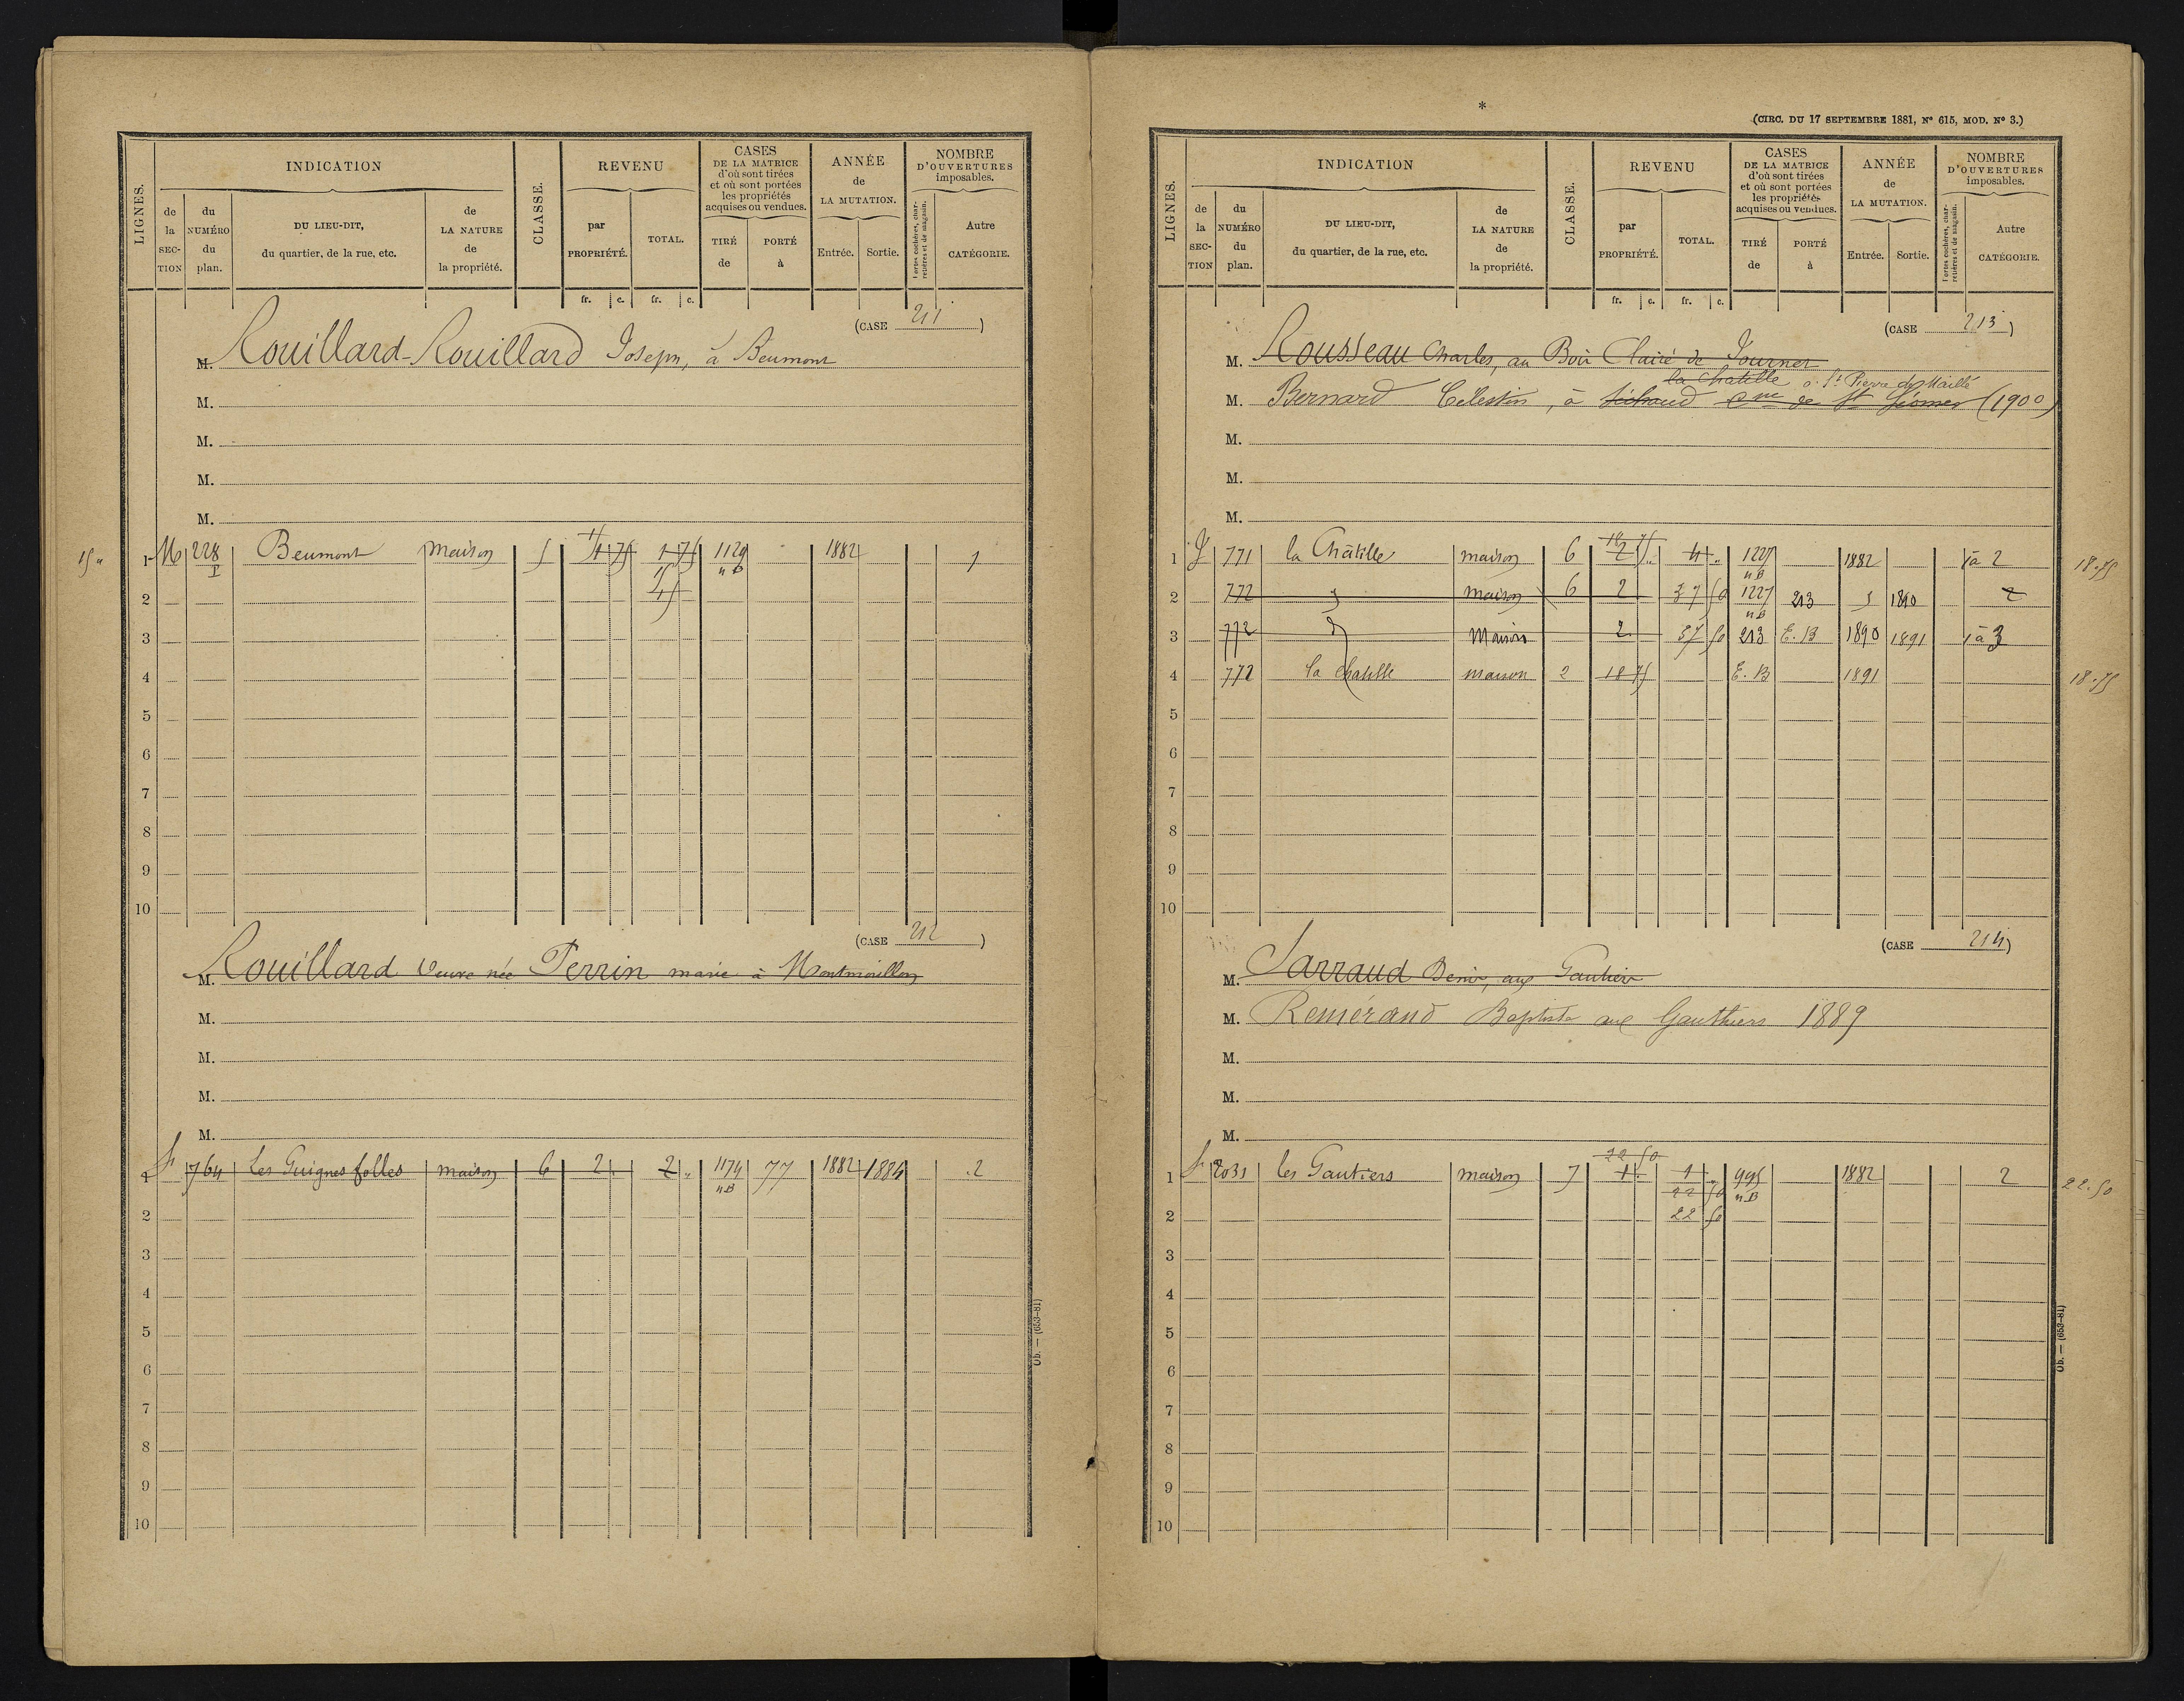 LIGNES. INDICATION CLASSE. REVENU CASES DE LA MATRICE d'où sont tirées et où sont portées les propriétés acquises ou vendues. ANNÉE de LA MUTATION. NOMBRE D'OUVERTURES imposables.
de la SECTION du NUMÉRO du plan. DU LIEU-DIT, du quartier, de la rue, etc. de LA NATURE de la propriété. par PROPRIÉTÉ. TOTAL. TIRÉ de PORTÉ à Entrée. Sortie. Portes cochères, charretières et de magasin. Autre CATÉGORIE.
fr. c. fr. c.
(CASE 211)
M. Rouillard-Rouillard Joseph, à Beumont
M.
M.
M.
M.
1 M 228 Beumont maison 5 1 75 1129 1882 1
nB
2
3
4
5
6
7
8
9
10
(CASE 212)
M. Rouillard veuve née Perrin marie à Montmorillon
M.
M.
M.
M.
764 les Guignes folles maison 6 2 2 " 1174 77 1882 1884 2
nB
2
3
4
5
6
7
8
9
10
Ob. — (653-81)
*
(CIRC. DU 17 SEPTEMBRE 1881, N° 615, MOD. N° 3.)
LIGNES. INDICATION CLASSE. REVENU CASES DE LA MATRICE d'où sont tirées et où sont portées les propriétés acquises ou vendues. ANNÉE de LA MUTATION. NOMBRE D'OUVERTURES imposables.
de la SECTION du NUMÉRO du plan. DU LIEU-DIT, du quartier, de la rue, etc. de LA NATURE de la propriété. par PROPRIÉTÉ. TOTAL. TIRÉ de PORTÉ à Entrée. Sortie. Portes cochères, charretières et de magasin. Autre CATÉGORIE.
fr. c. fr. c.
(CASE 213)
M. Rousseau Charles, au Bois de Journet
la Chatille à St Pierre de Maillé
M. Bernard Célestin, à cne de St Léomer (1900)
M.
M.
M.
18 75
1 771 la Châtille maison 6 2 4 " 1227 1882 1 à 2 18.75
nB
2 772 maison 6 2 37 50 1227 213 1890 2
nB
3 772 Maison 2 37 50 213 E. B 1890 1891 1 à 3
4 772 la chatille maison 2 18 75 E. B 1891 18.75
5
6
7
8
9
10
(CASE 214)
M. Sarraud Denis, aux Gautiers
M. Remérand Baptiste aux Gauthiers 1889
M.
M.
M.
22 50
1 2031 les Gautiers maison 7 1 1 995 1882 2 22.50
22 50 nB
2 22 50
3
4
5
6
7
8
9
10
Ob. — (653-81)